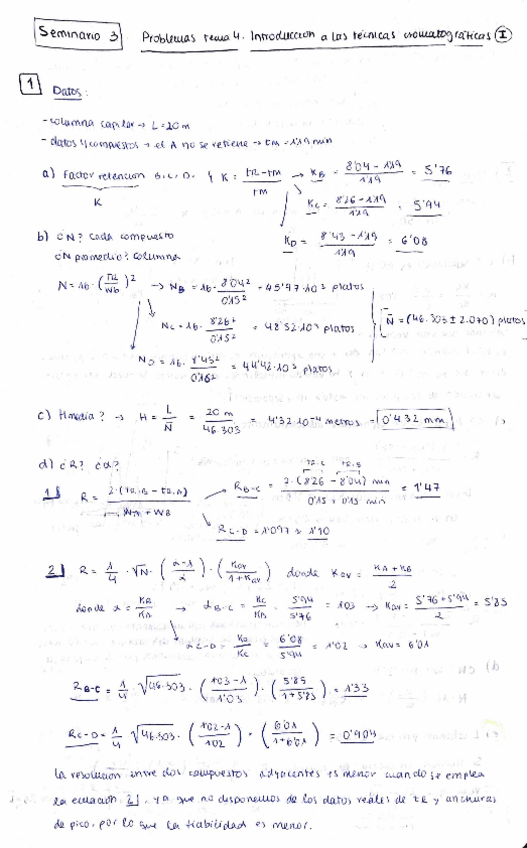 Seminario 3 Problemas tema 4. Introducción a las técnicas cromatográficas (I)
1 Datos:
- columna capilar → L = 20 m
- datos 4 compuestos → el A no se retiene → tm = 1'19 min
a) Factor retención B, C, D. K = tR - tM / tM → KB = 8'04 - 1'19 / 1'19 = 5'76
K
KC = 8'26 - 1'19 / 1'19 = 5'94
KD = 8'43 - 1'19 / 1'19 = 6'08
b) ¿N? Cada compuesto
¿N promedio? Columna
N = 16 · (tR / Wb)² → NB = 16 · 8'04² / 0'15² = 45'97·10³ platos
NC = 16 · 8'26² / 0'15² = 48'52·10³ platos
N̄ = (46.303 ± 2.070) platos
ND = 16 · 8'43² / 0'16² = 44'42·10³ platos
c) Hmedia? → H = L / N̄ = 20 m / 46.303 = 4'32·10⁻⁴ metros = 0'432 mm
d) ¿R? ¿α?
1) R = 2·(tR,B - tR,A) / WA + WB
RB-C = 2·(8'26 - 8'04) min / 0'15 + 0'15 min = 1'47
tR,C tR,B
RC-D = 1'097 ≈ 1'10
2) R = 1/4 · √N · (α-1 / α) · (Kav / 1+Kav) donde Kav = KA + KB / 2
donde α = KB / KA → αB-C = KC / KB = 5'94 / 5'76 = 1'03 → Kav = 5'76 + 5'94 / 2 = 5'85
αC-D = KD / KC = 6'08 / 5'94 = 1'02 → Kav = 6'01
RB-C = 1/4 √46.303 · (1'03 - 1 / 1'03) · (5'85 / 1+5'85) = 1'33
RC-D = 1/4 √46.303 · (1'02 - 1 / 1'02) · (6'01 / 1+6'01) = 0'904
La resolución entre dos compuestos adyacentes es menor cuando se emplea
la ecuación 2), ya que no disponemos de los datos reales de tR y anchuras
de pico, por lo que la fiabilidad es menor.